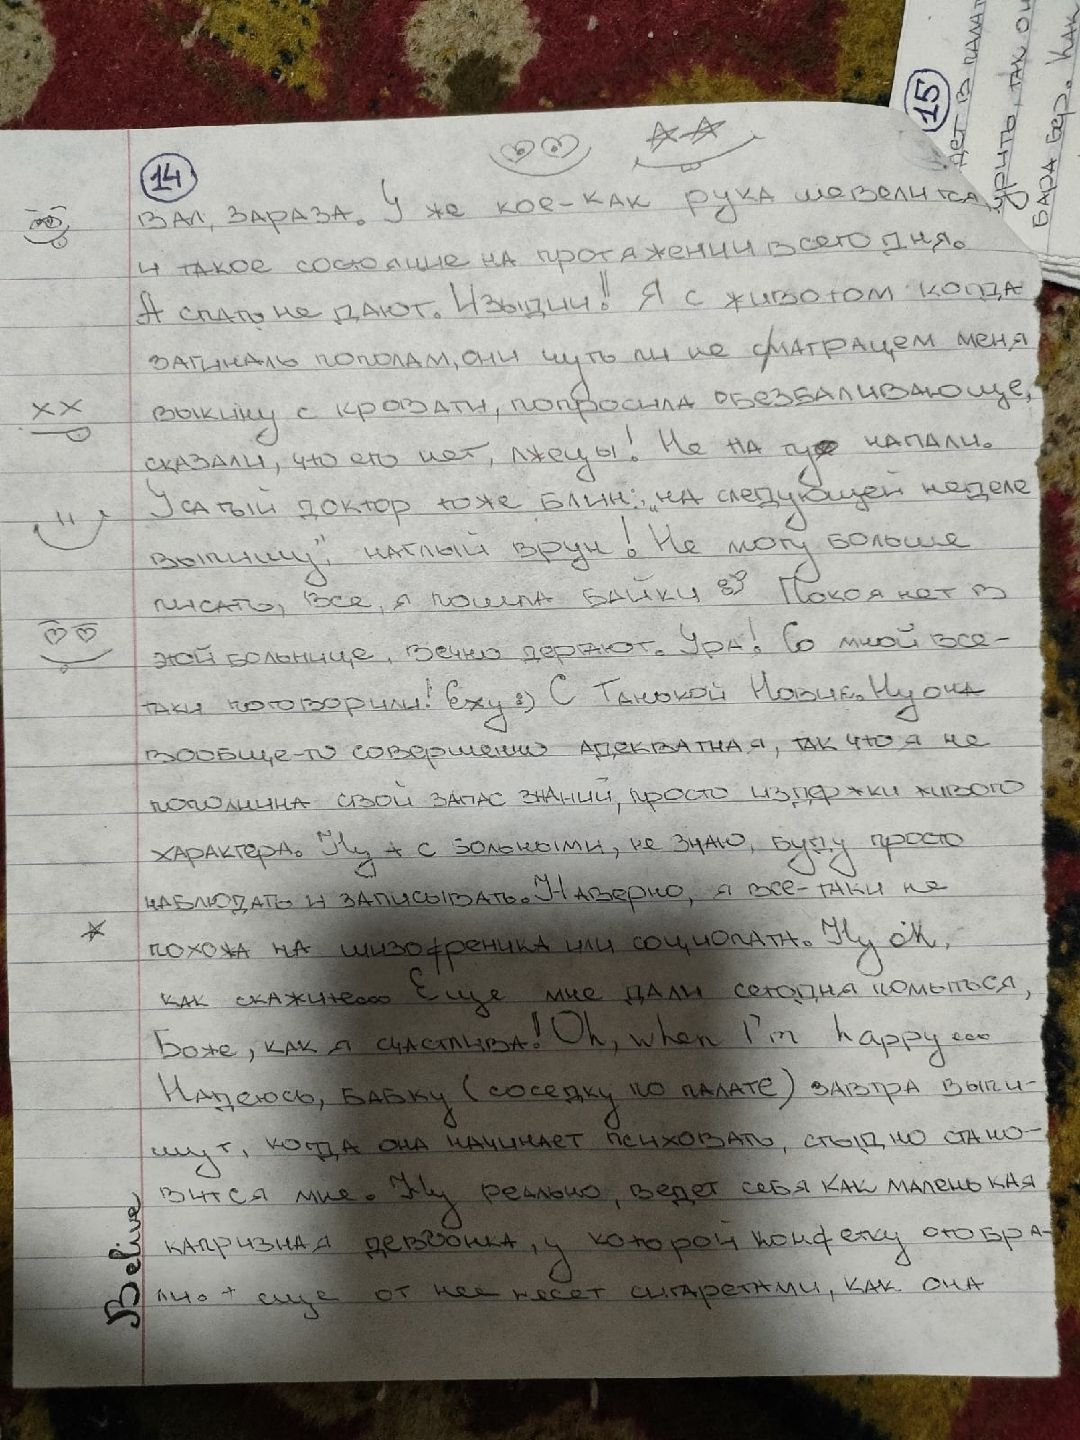 14
15
вал, зараза. Уже кое-как рука шевелится,
и такое состояние на протяжении всего дня.
А спать не дают. Изыди!! Я с животом когда
загиналь пополам, они чуть ли не с матрацем меня
выкину с кровати, попросила обезбаливающе,
сказали, что его нет, лжецы! Не на ту напали.
Усатый доктор тоже блин: „на следующей неделе
выпишу", наглый врун! Не могу больше
писать, все, я пошла байки Покоя нет в
этой больнице, вечно держют. Ура! Со мной все-
таки поговорили! Еху :) С Танькой Новик. Ну она
вообще-то совершенно адекватная, так что я не
пополнила свой запас знаний, просто издержки живого
характера. Ну а с больными, не знаю, буду просто
наблюдать и записывать. Наверно, я все-таки не
похожа на шизофреника или социопата. Ну ок,
как скажите... Еще мне дали сегодня помыться,
Боже, как я счастлива! Oh, when I'm happy...
Надеюсь, бабку (соседку по палате) завтра выпи-
шут, когда она начинает психовать, стыдно стано-
вится мне. Ну реально, ведет себя как маленькая
капризная девчонка, у которой конфетку отобра-
ли. + еще от нее несет сигаретами, как она
Belive
дет в палат
урить, так он
бара бер. Как